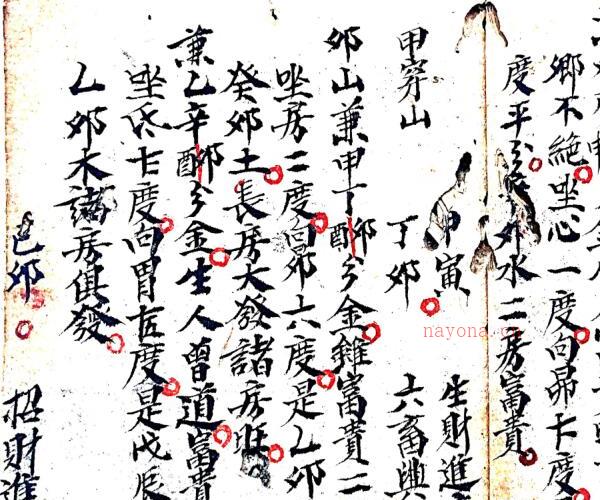 鄉不絶坐心一度向昴七度
度平分癸卯水二房富貴
甲寅 生財進
甲穿山
丁卯 六畜興
卯山兼甲丁卯酉分金雖富貴二
坐房二度向卯六度是乙卯
癸卯土長房大發諸房旺
兼乙辛卯酉分金生人曾道富貴
坐氐七度向胃五度是戊辰
乙卯木諸房俱發
己卯 招財進
nayona.cn